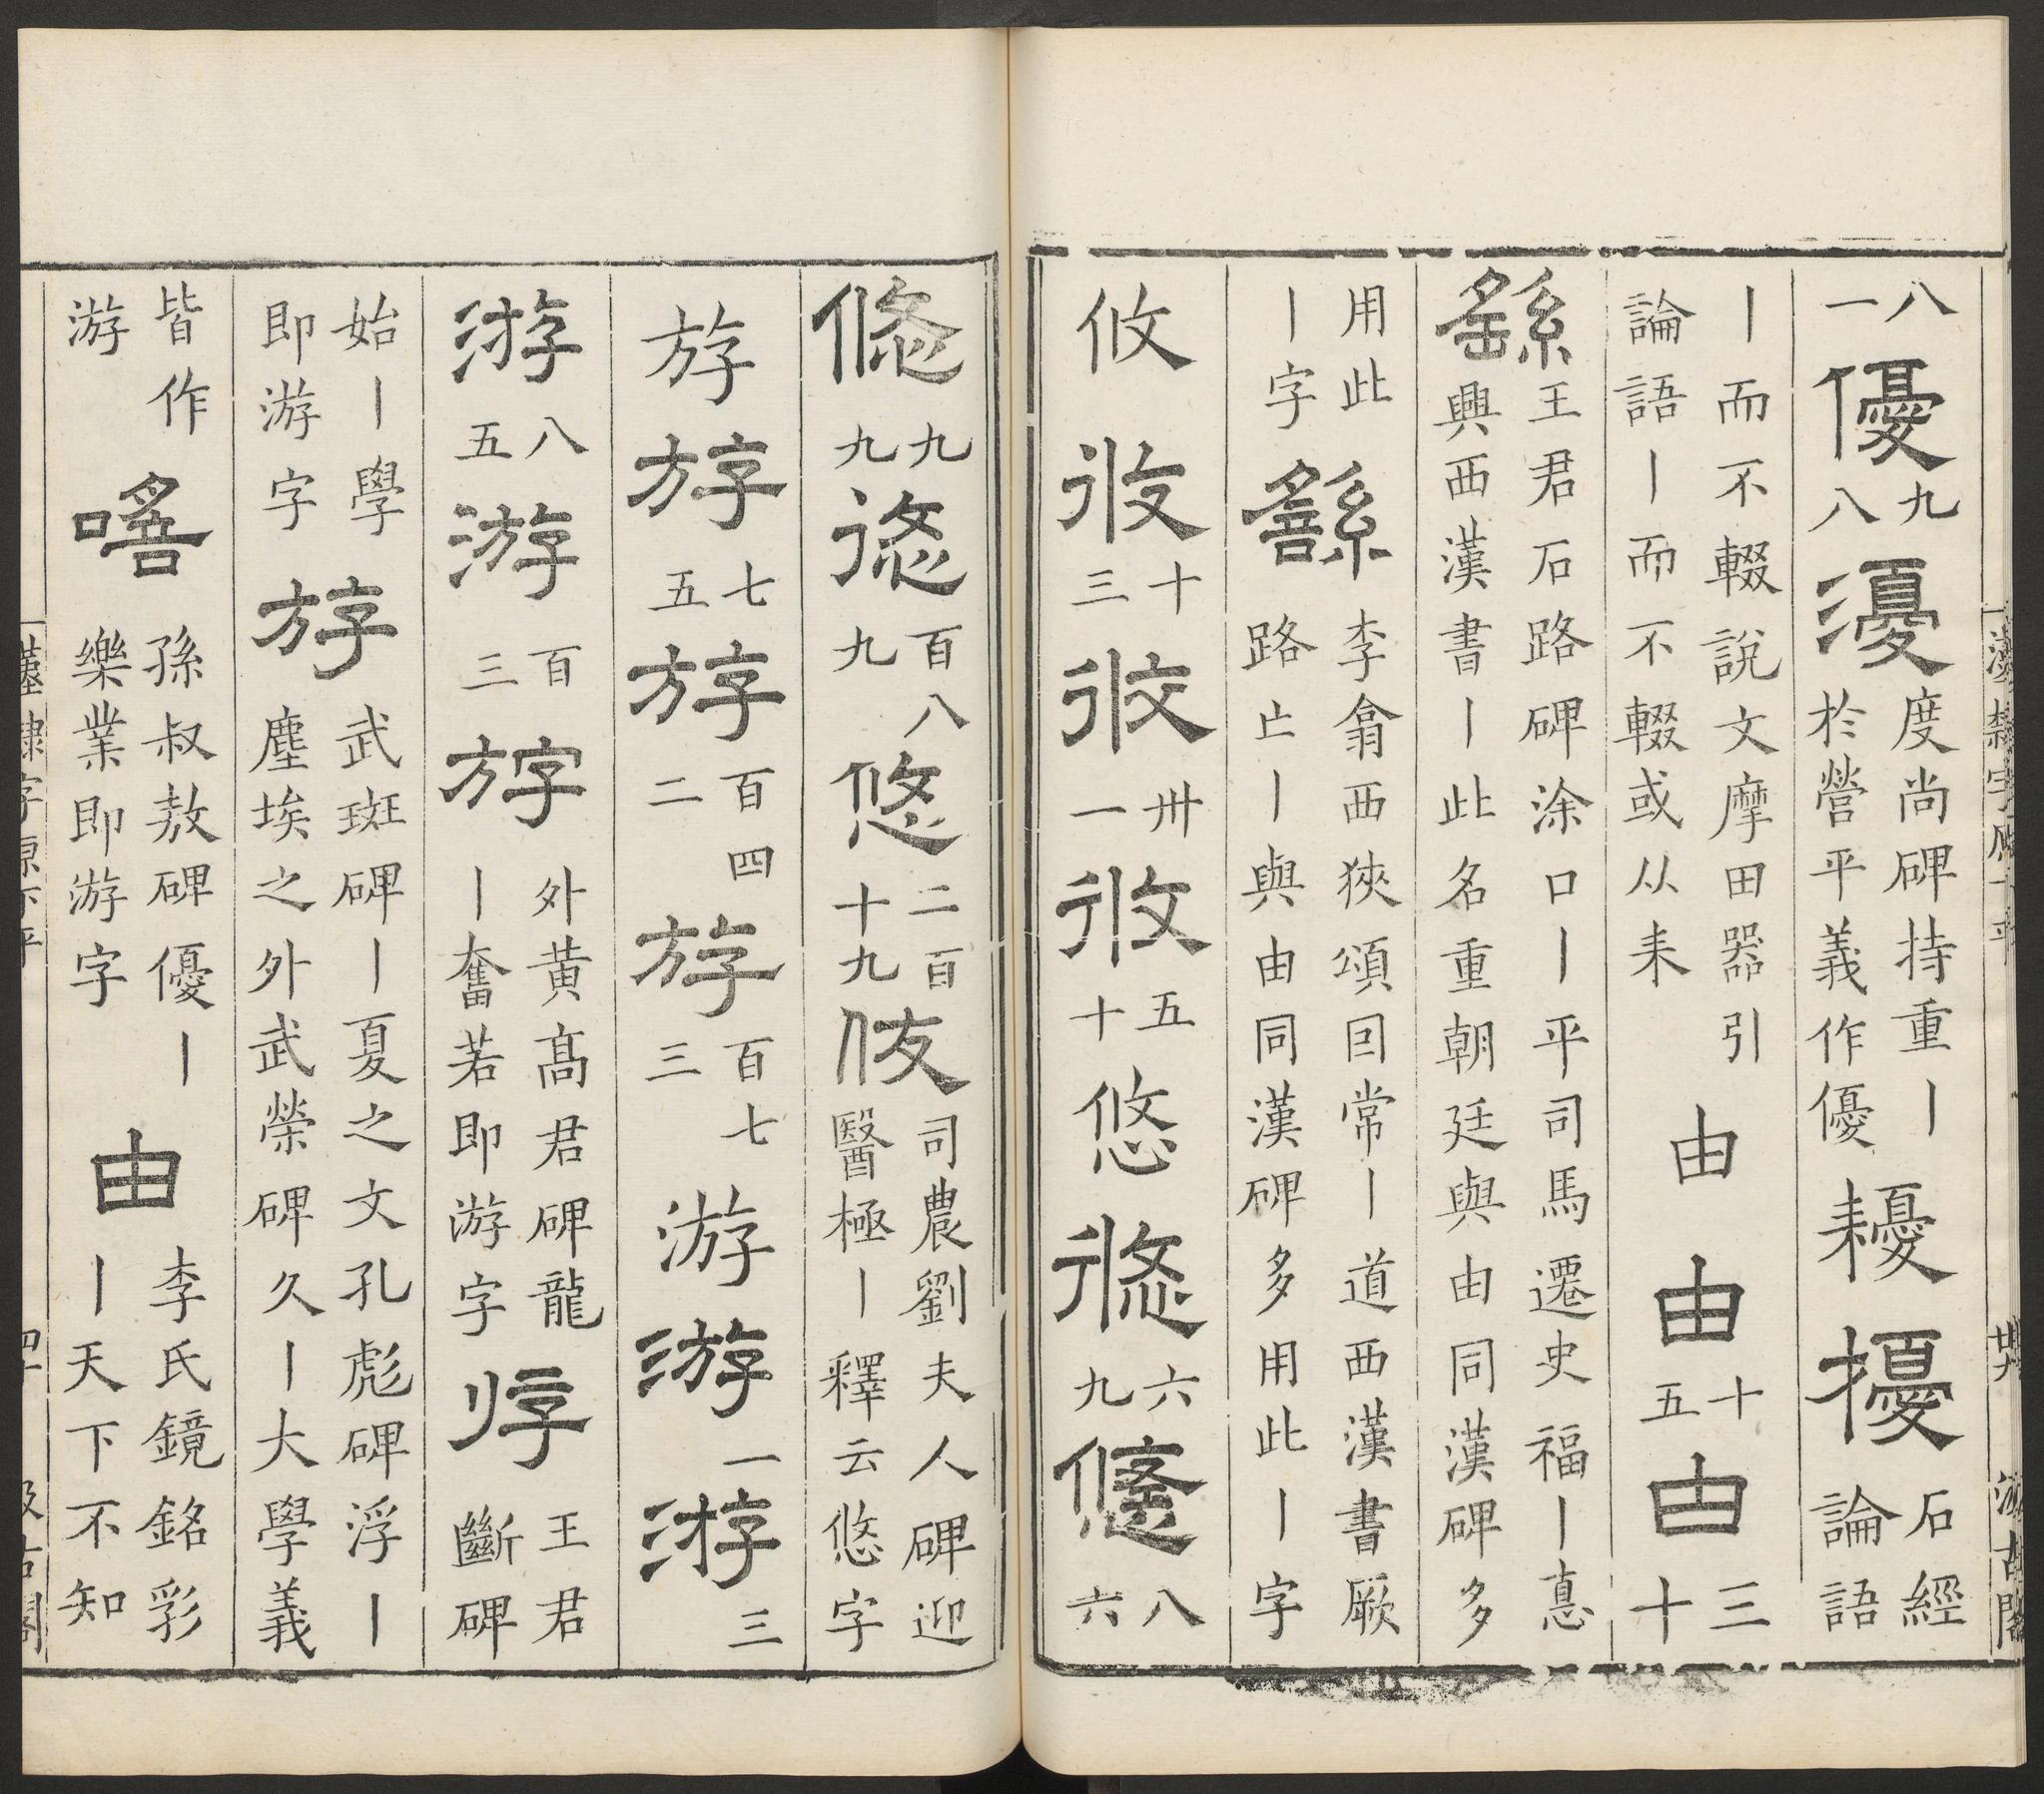 八一優九八漫度尚碑持重丨於營平義作優耰擾石經論語
丨而不輟說文摩田器引論語丨而不輟或从耒由由十五由三十
繇王君石路碑涂口丨平司馬遷史福丨憙興西漢書丨此名重朝廷與由同漢碑多
用此丨字繇李翕西狹頌回常丨道西漢書厥路亡丨與由同漢碑多用此丨字
攸攸攸十三攸卅一攸五十悠悠六九悠八六
悠九九悠百八九悠二百十九攸司農劉夫人碑迎醫極丨釋云悠字
斿斿斿七五斿百四二斿百七三游游游一游三
游八五游百三斿外黄高君碑龍丨奮若即游字斿王君斷碑
始丨學即游字斿武斑碑丨夏之文孔彪碑浮丨塵埃之外武榮碑久丨大學義
皆作游嚤孫叔敖碑優丨樂業即游字由李氏鏡銘彩丨天下不知